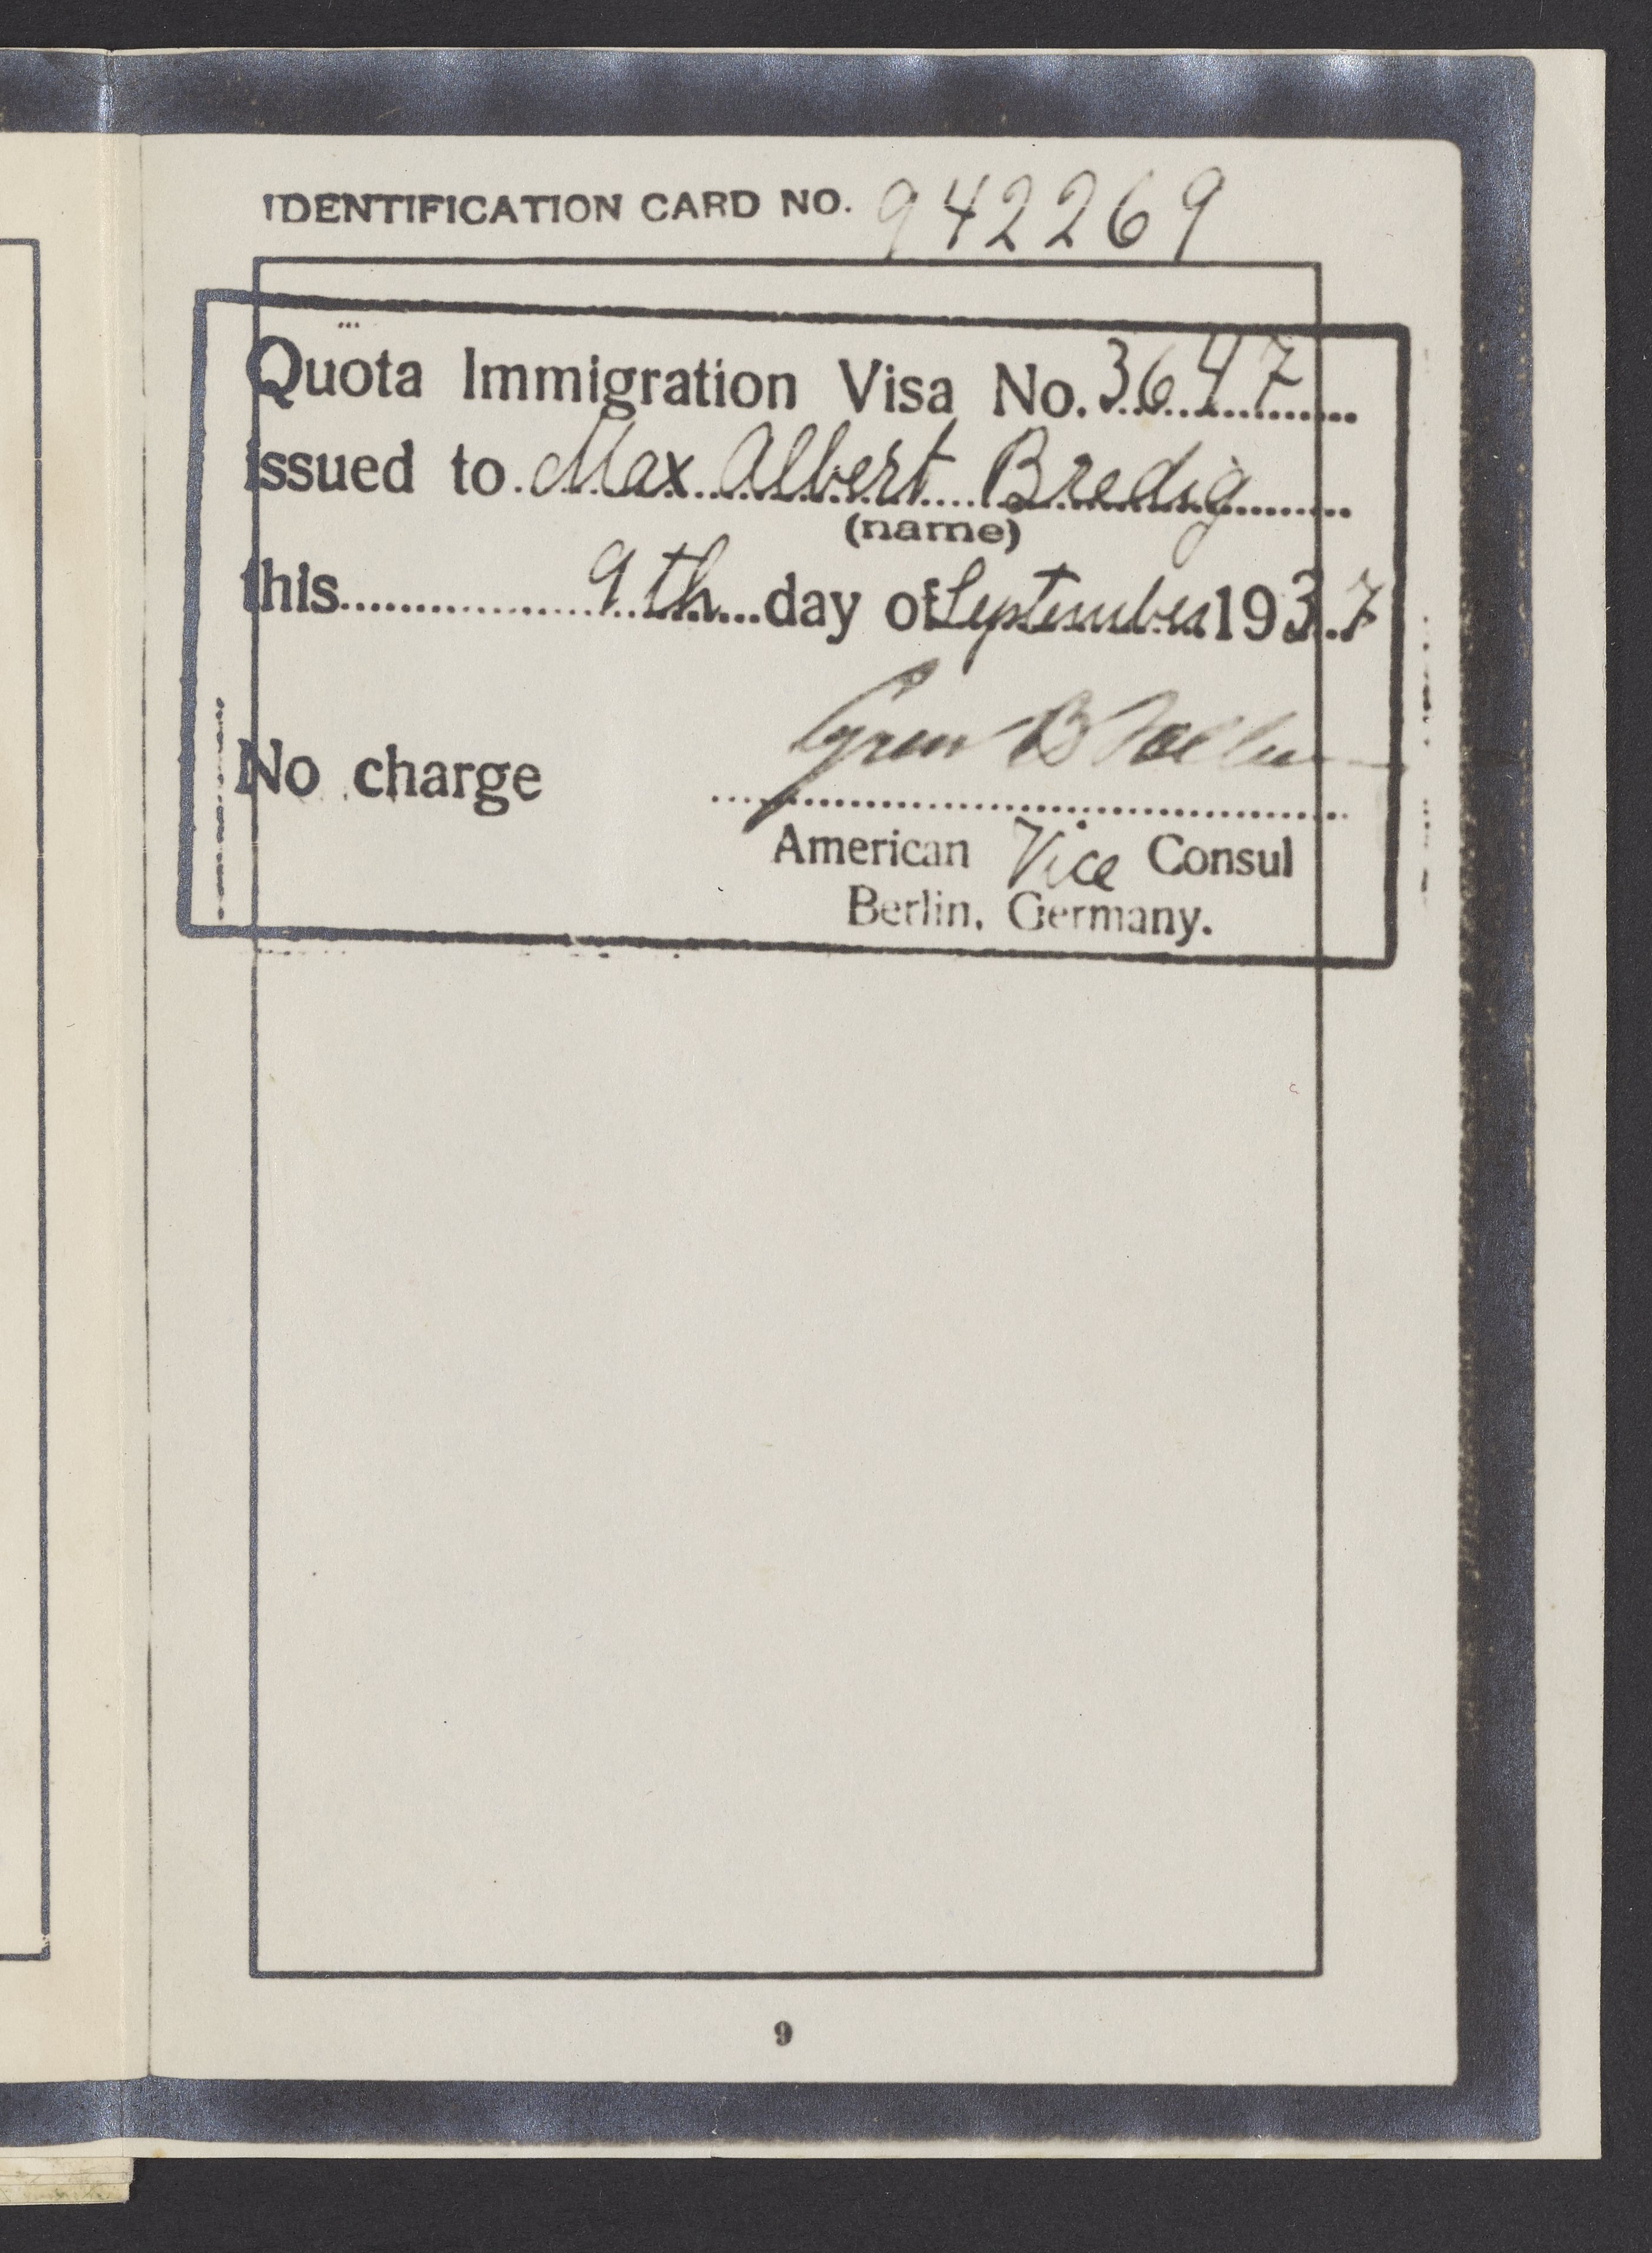 IDENTIFICATION CARD NO. 942269
Quota Immigration Visa No. 3647
issued to Max Albert Bredig
(name)
this 9th day of September 1937
No charge
American Vice Consul
Berlin, Germany.
9